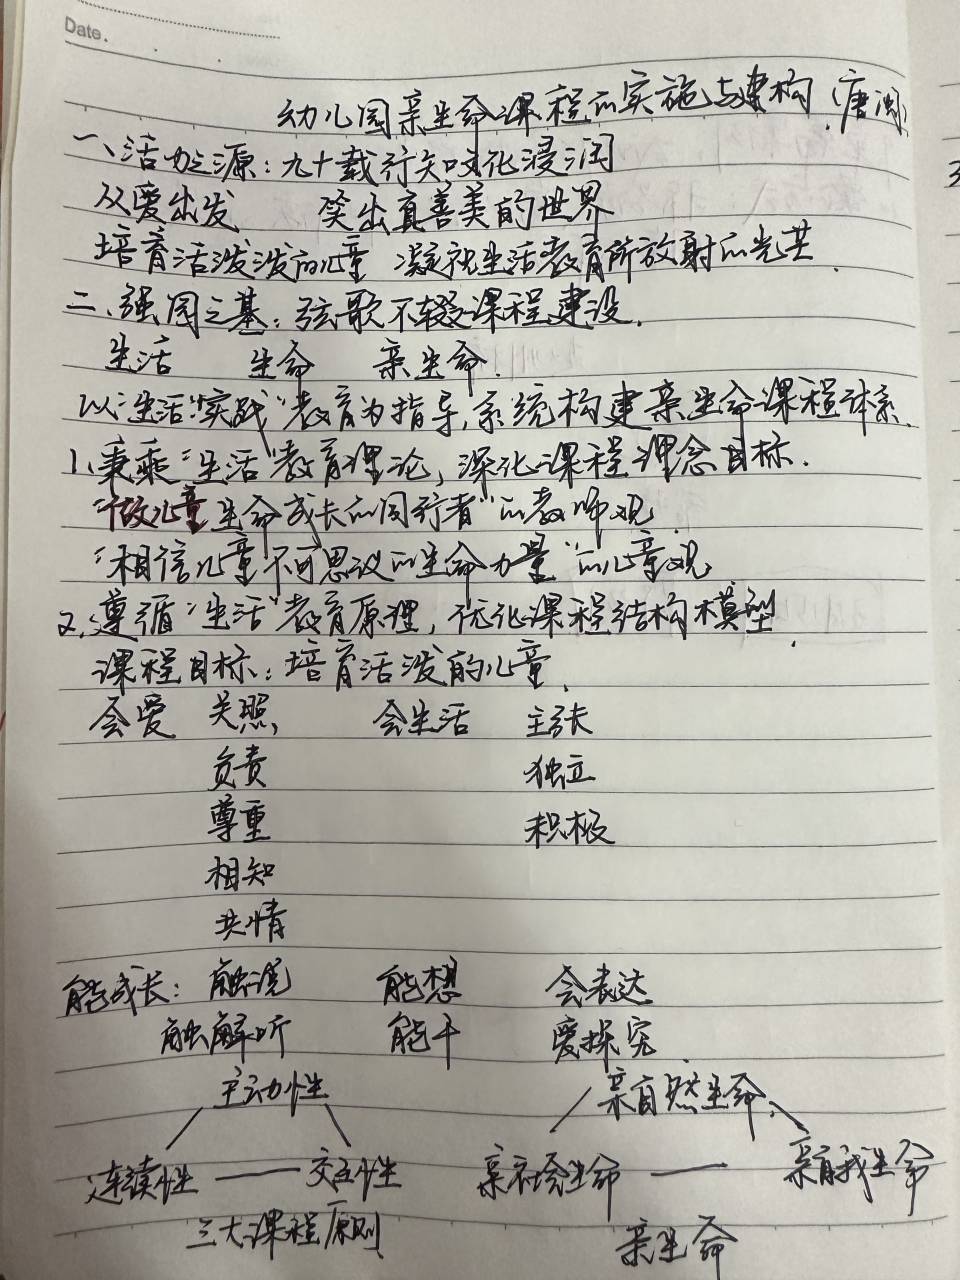 Date.
幼儿园亲生命课程的实施与建构（唐
一、活力之源：九十载行知文化浸润
从爱出发 突出真善美的世界
培育活泼泼的儿童 凝视生活教育所放射的光芒.
二、强园之基：弦歌不辍课程建设.
生活 生命 亲生命.
以“生活”实践”教育为指导，系统构建亲生命课程体系.
1、秉乘“生活”教育理论，深化课程理念目标.
“做儿童生命成长的同行者”的教师观
“相信儿童不可思议的生命力量”的儿童观
2、遵循“生活”教育原理，优化课程结构模型.
课程目标：培育活泼的儿童.
会爱 关照, 会生活 主张
负责 独立
尊重 积极
相知
共情
能成长： 能想 会表达
能干 爱探究.
主动性 亲自然生命.
连续性 — 交互性 亲社会生命 — 亲自我生命
三大课程原则 亲生命